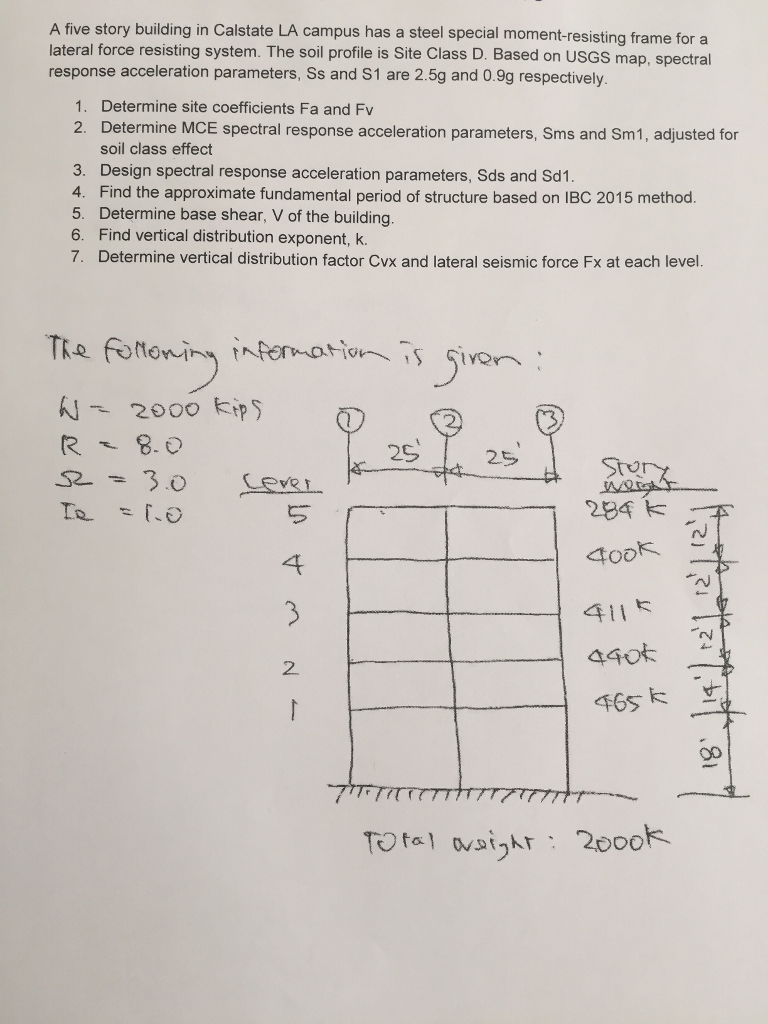 A five story building in Calstate LA campus has a steel special moment-resisting frame for a
lateral force resisting system. The soil profile is Site Class D. Based on USGS map, spectral
response acceleration parameters, Ss and S1 are 2.5g and 0.9g respectively.
1. Determine site coefficients Fa and Fv
2. Determine MCE spectral response acceleration parameters, Sms and Sm1, adjusted for
soil class effect
3. Design spectral response acceleration parameters, Sds and Sd1.
4. Find the approximate fundamental period of structure based on IBC 2015 method.
5. Determine base shear, V of the building.
6. Find vertical distribution exponent, k.
7. Determine vertical distribution factor Cvx and lateral seismic force Fx at each level.
The following information is given:
W = 2000 kips
R = 8.0
Ω = 3.0
Ie = 1.0
1 2 3
25' 25'
Level
Story
weight
5 284 K 12'
4 400K 12'
3 411 K 12'
2 440K 14'
1 465 K 18'
Total weight: 2000K